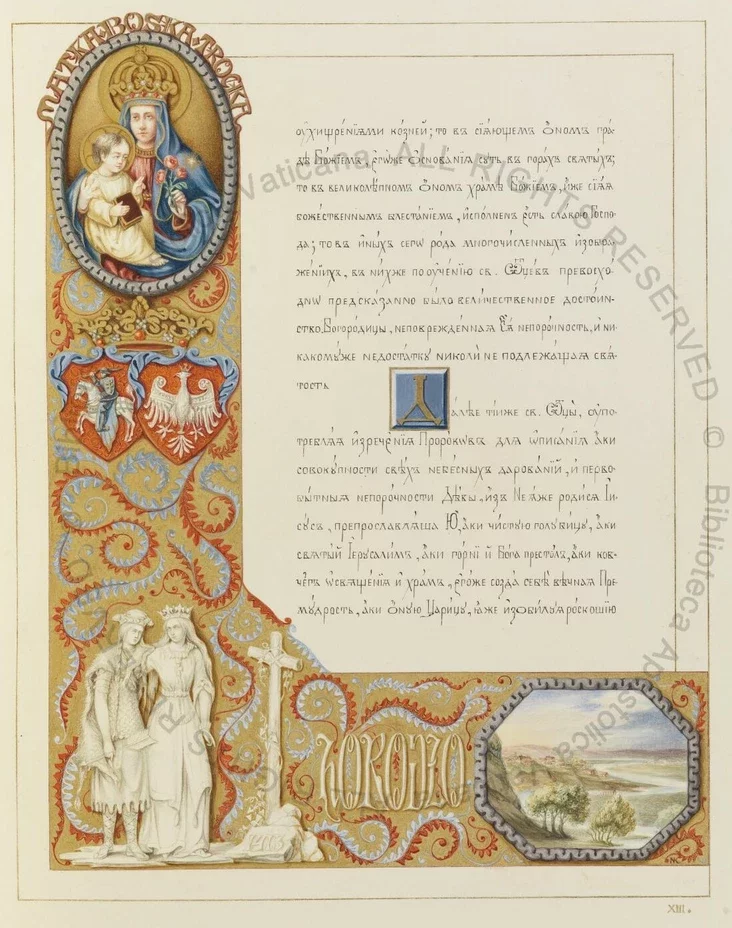 MATKA·BOSKA·TROCKA
оухищреніѧми козней; то въ сіѧющемъ Ономъ гра-
дѣ Божіемъ, егѡже Основаніѧ суть въ горахъ свѧтыхъ;
то въ великолѣпномъ Ономъ храмѣ Божіемъ, иже сіѧѧ
божественнымъ блестаніемъ, исполненъ есть славою Госпо-
да; то въ иныхъ сегѡ рода многочисленныхъ изобра-
женіихъ, въ нихже по оученію св. Отцевъ превосхо-
днѡ предсказанно было величественное достоин-
ство Богородицы, неповрежденнаѧ Еѧ непорочность, и ни-
какомуже недостатку николи не подлежащаѧ свѧ-
тость
Далѣе тіиже св. Отцы, оупо-
треблѧѧ изреченіѧ Пророковъ длѧ ѡписаніѧ аки
совокупности свѣхъ небесныхъ дарованій, и перво-
бытныѧ непорочности Дѣвы, изъ Неѧже родисѧ Іи-
сусъ, препрославлѧша Ю, аки чистую голубицу, аки
свѧтый Іерусалимъ, аки горній й Бога престолъ, аки ков-
чегъ ѡсвѧщеніѧ и храмъ, егоже созда себѣ вѣчнаѧ Пре-
мудрость, аки Оную Царицу, ꙗже изобилуѧ роскошію
XIII.
Vaticana ALL RIGHTS RESERVED © Biblioteca Apostolica